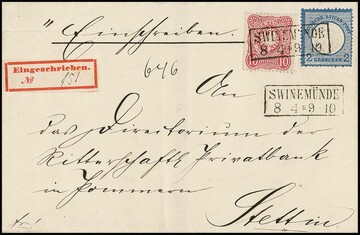 „Einschreiben."
SWINEMÜNDE
8 4 * 9 10
10
2 GROSCHEN 2
Eingeschrieben.
№ 151
646
SWINEMÜNDE
8 4 * 9 10
An
das Directorium der
Ritterschaftl. Privatbank
in Pommern
Stettin